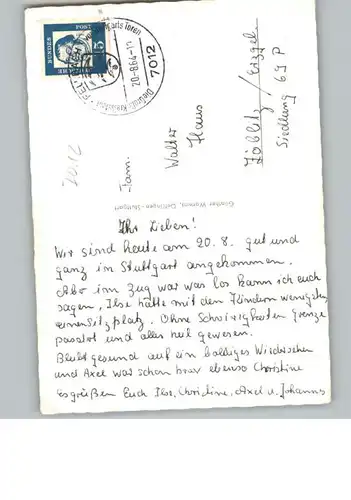 Ihr Lieben!
Wir sind heute am 20.8. gut und
ganz in Stuttgart angekommen.
Aber im Zug war was los kann ich euch
sagen, Ilse hatte mit den Kindern wenigstens
einen Sitzplatz. Ohne Schwirigkeiten Grenze
passiert und alles heil gewesen.
Bleibt gesund auf ein baldiges Wiedersehen
und Axel war schon brav ebenso Christine
Es grüßen Euch Ilse, Christine, Axel u. Johannes
Fam.
Walter
Haus
Zöblitz / Erzgeb
Siedlung 69 P
7012
20.-8.64-1
7012
DEUTSCHE
BUNDES
POST
5